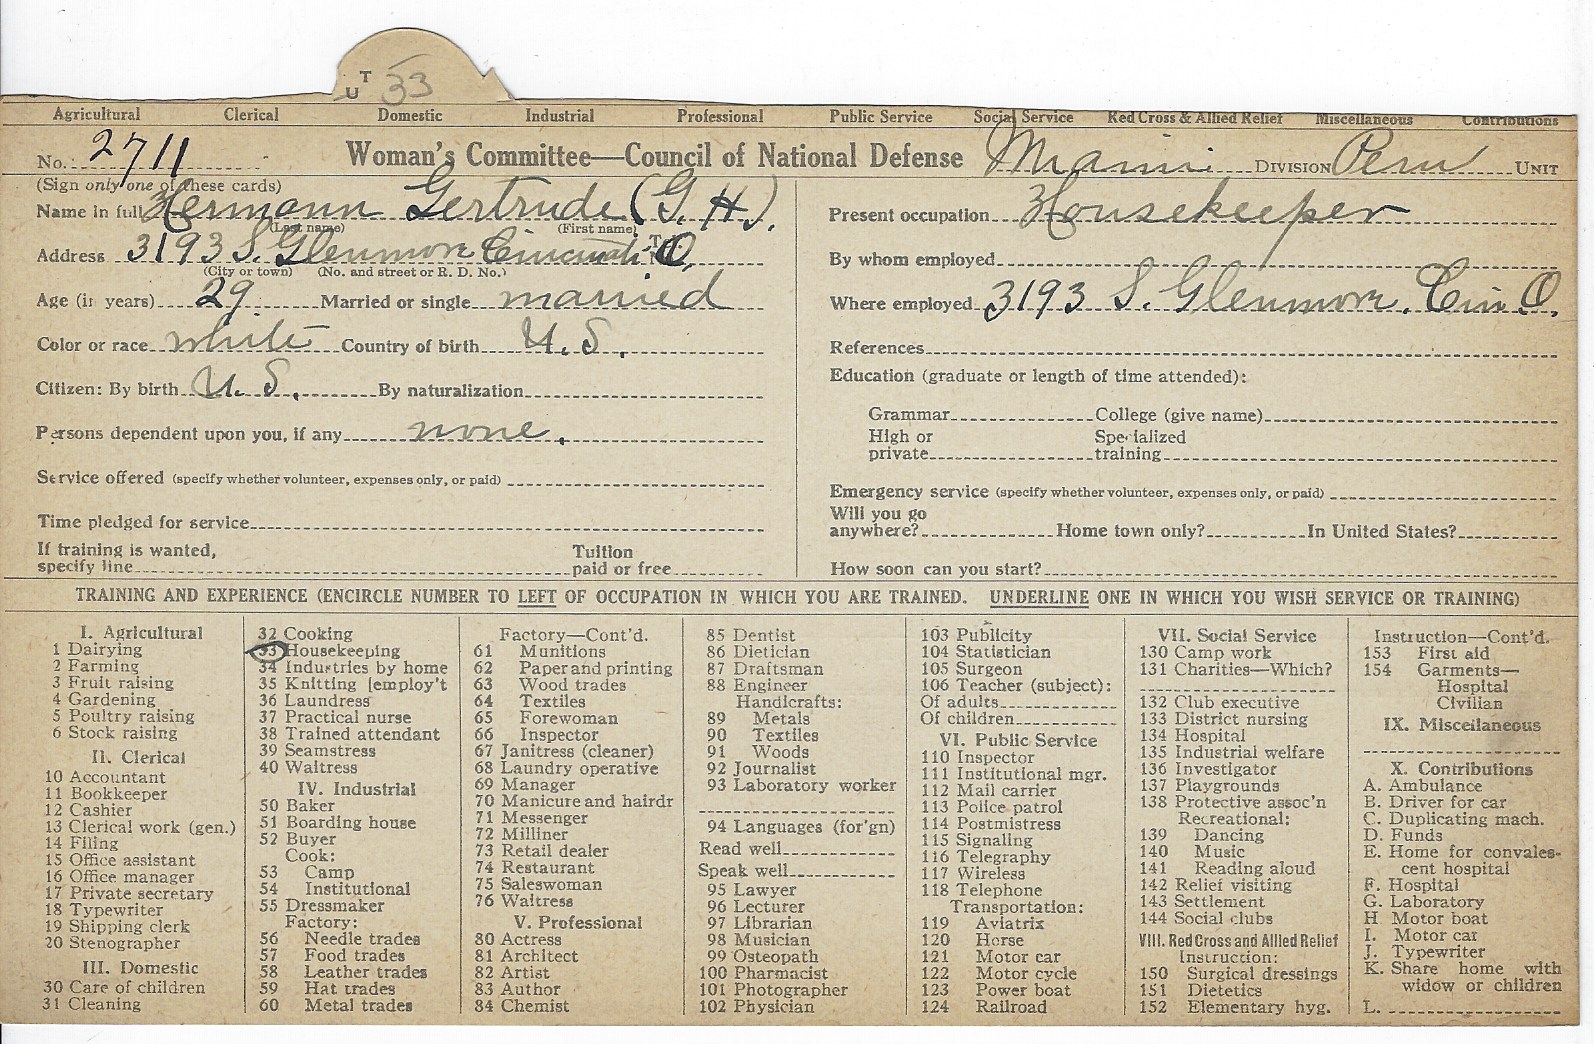 T
U 33
Agricultural Clerical Domestic Industrial Professional Public Service Social Service Red Cross & Allied Relief Miscellaneous Contributions
No. 2711 Woman's Committee—Council of National Defense Miami DIVISION Peru UNIT
(Sign only one of these cards)
Name in full Hermann Gertrude (G. H.)
(Last name) (First name)
Address 3193 S. Glenmore Cincinnati O.
(City or town) (No. and street or R. D. No.)
Age (in years) 29 Married or single married
Color or race white Country of birth U. S.
Citizen: By birth U. S. By naturalization
Persons dependent upon you, if any none.
Service offered (specify whether volunteer, expenses only, or paid)
Time pledged for service
If training is wanted,
specify line Tuition
paid or free
Present occupation Housekeeper
By whom employed
Where employed 3193 S. Glenmore. Cin O.
References
Education (graduate or length of time attended):
Grammar College (give name)
High or Specialized
private training
Emergency service (specify whether volunteer, expenses only, or paid)
Will you go
anywhere? Home town only? In United States?
How soon can you start?
TRAINING AND EXPERIENCE (ENCIRCLE NUMBER TO LEFT OF OCCUPATION IN WHICH YOU ARE TRAINED. UNDERLINE ONE IN WHICH YOU WISH SERVICE OR TRAINING)
I. Agricultural
1 Dairying
2 Farming
3 Fruit raising
4 Gardening
5 Poultry raising
6 Stock raising
II. Clerical
10 Accountant
11 Bookkeeper
12 Cashier
13 Clerical work (gen.)
14 Filing
15 Office assistant
16 Office manager
17 Private secretary
18 Typewriter
19 Shipping clerk
20 Stenographer
III. Domestic
30 Care of children
31 Cleaning
32 Cooking
33 Housekeeping
34 Industries by home
35 Knitting [employ't
36 Laundress
37 Practical nurse
38 Trained attendant
39 Seamstress
40 Waitress
IV. Industrial
50 Baker
51 Boarding house
52 Buyer
Cook:
53 Camp
54 Institutional
55 Dressmaker
Factory:
56 Needle trades
57 Food trades
58 Leather trades
59 Hat trades
60 Metal trades
Factory—Cont'd.
61 Munitions
62 Paper and printing
63 Wood trades
64 Textiles
65 Forewoman
66 Inspector
67 Janitress (cleaner)
68 Laundry operative
69 Manager
70 Manicure and hairdr
71 Messenger
72 Milliner
73 Retail dealer
74 Restaurant
75 Saleswoman
76 Waitress
V. Professional
80 Actress
81 Architect
82 Artist
83 Author
84 Chemist
85 Dentist
86 Dietician
87 Draftsman
88 Engineer
Handicrafts:
89 Metals
90 Textiles
91 Woods
92 Journalist
93 Laboratory worker
94 Languages (for'gn)
Read well
Speak well
95 Lawyer
96 Lecturer
97 Librarian
98 Musician
99 Osteopath
100 Pharmacist
101 Photographer
102 Physician
103 Publicity
104 Statistician
105 Surgeon
106 Teacher (subject):
Of adults
Of children
VI. Public Service
110 Inspector
111 Institutional mgr.
112 Mail carrier
113 Police patrol
114 Postmistress
115 Signaling
116 Telegraphy
117 Wireless
118 Telephone
Transportation:
119 Aviatrix
120 Horse
121 Motor car
122 Motor cycle
123 Power boat
124 Railroad
VII. Social Service
130 Camp work
131 Charities—Which?
132 Club executive
133 District nursing
134 Hospital
135 Industrial welfare
136 Investigator
137 Playgrounds
138 Protective assoc'n
Recreational:
139 Dancing
140 Music
141 Reading aloud
142 Relief visiting
143 Settlement
144 Social clubs
VIII. Red Cross and Allied Relief
Instruction:
150 Surgical dressings
151 Dietetics
152 Elementary hyg.
Instruction—Cont'd.
153 First aid
154 Garments—
Hospital
Civilian
IX. Miscellaneous
X. Contributions
A. Ambulance
B. Driver for car
C. Duplicating mach.
D. Funds
E. Home for convales-
cent hospital
F. Hospital
G. Laboratory
H Motor boat
I. Motor car
J. Typewriter
K. Share home with
widow or children
L.